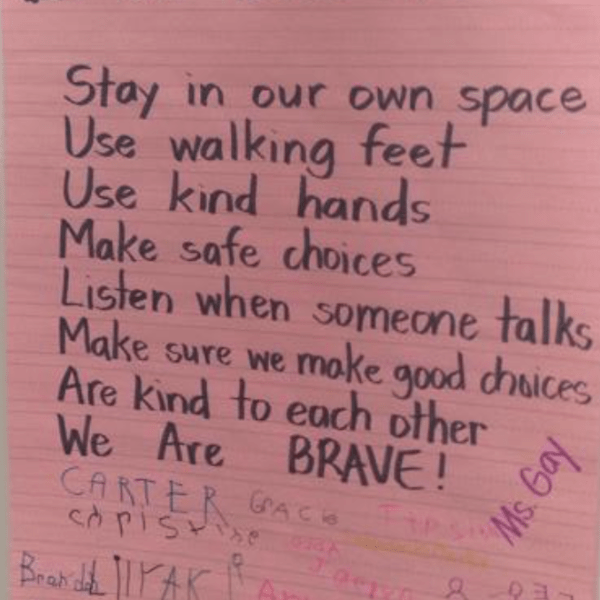 Stay in our own space
Use walking feet
Use kind hands
Make safe choices
Listen when someone talks
Make sure we make good choices
Are kind to each other
We Are BRAVE!
Ms. Gay
CARTER
christine